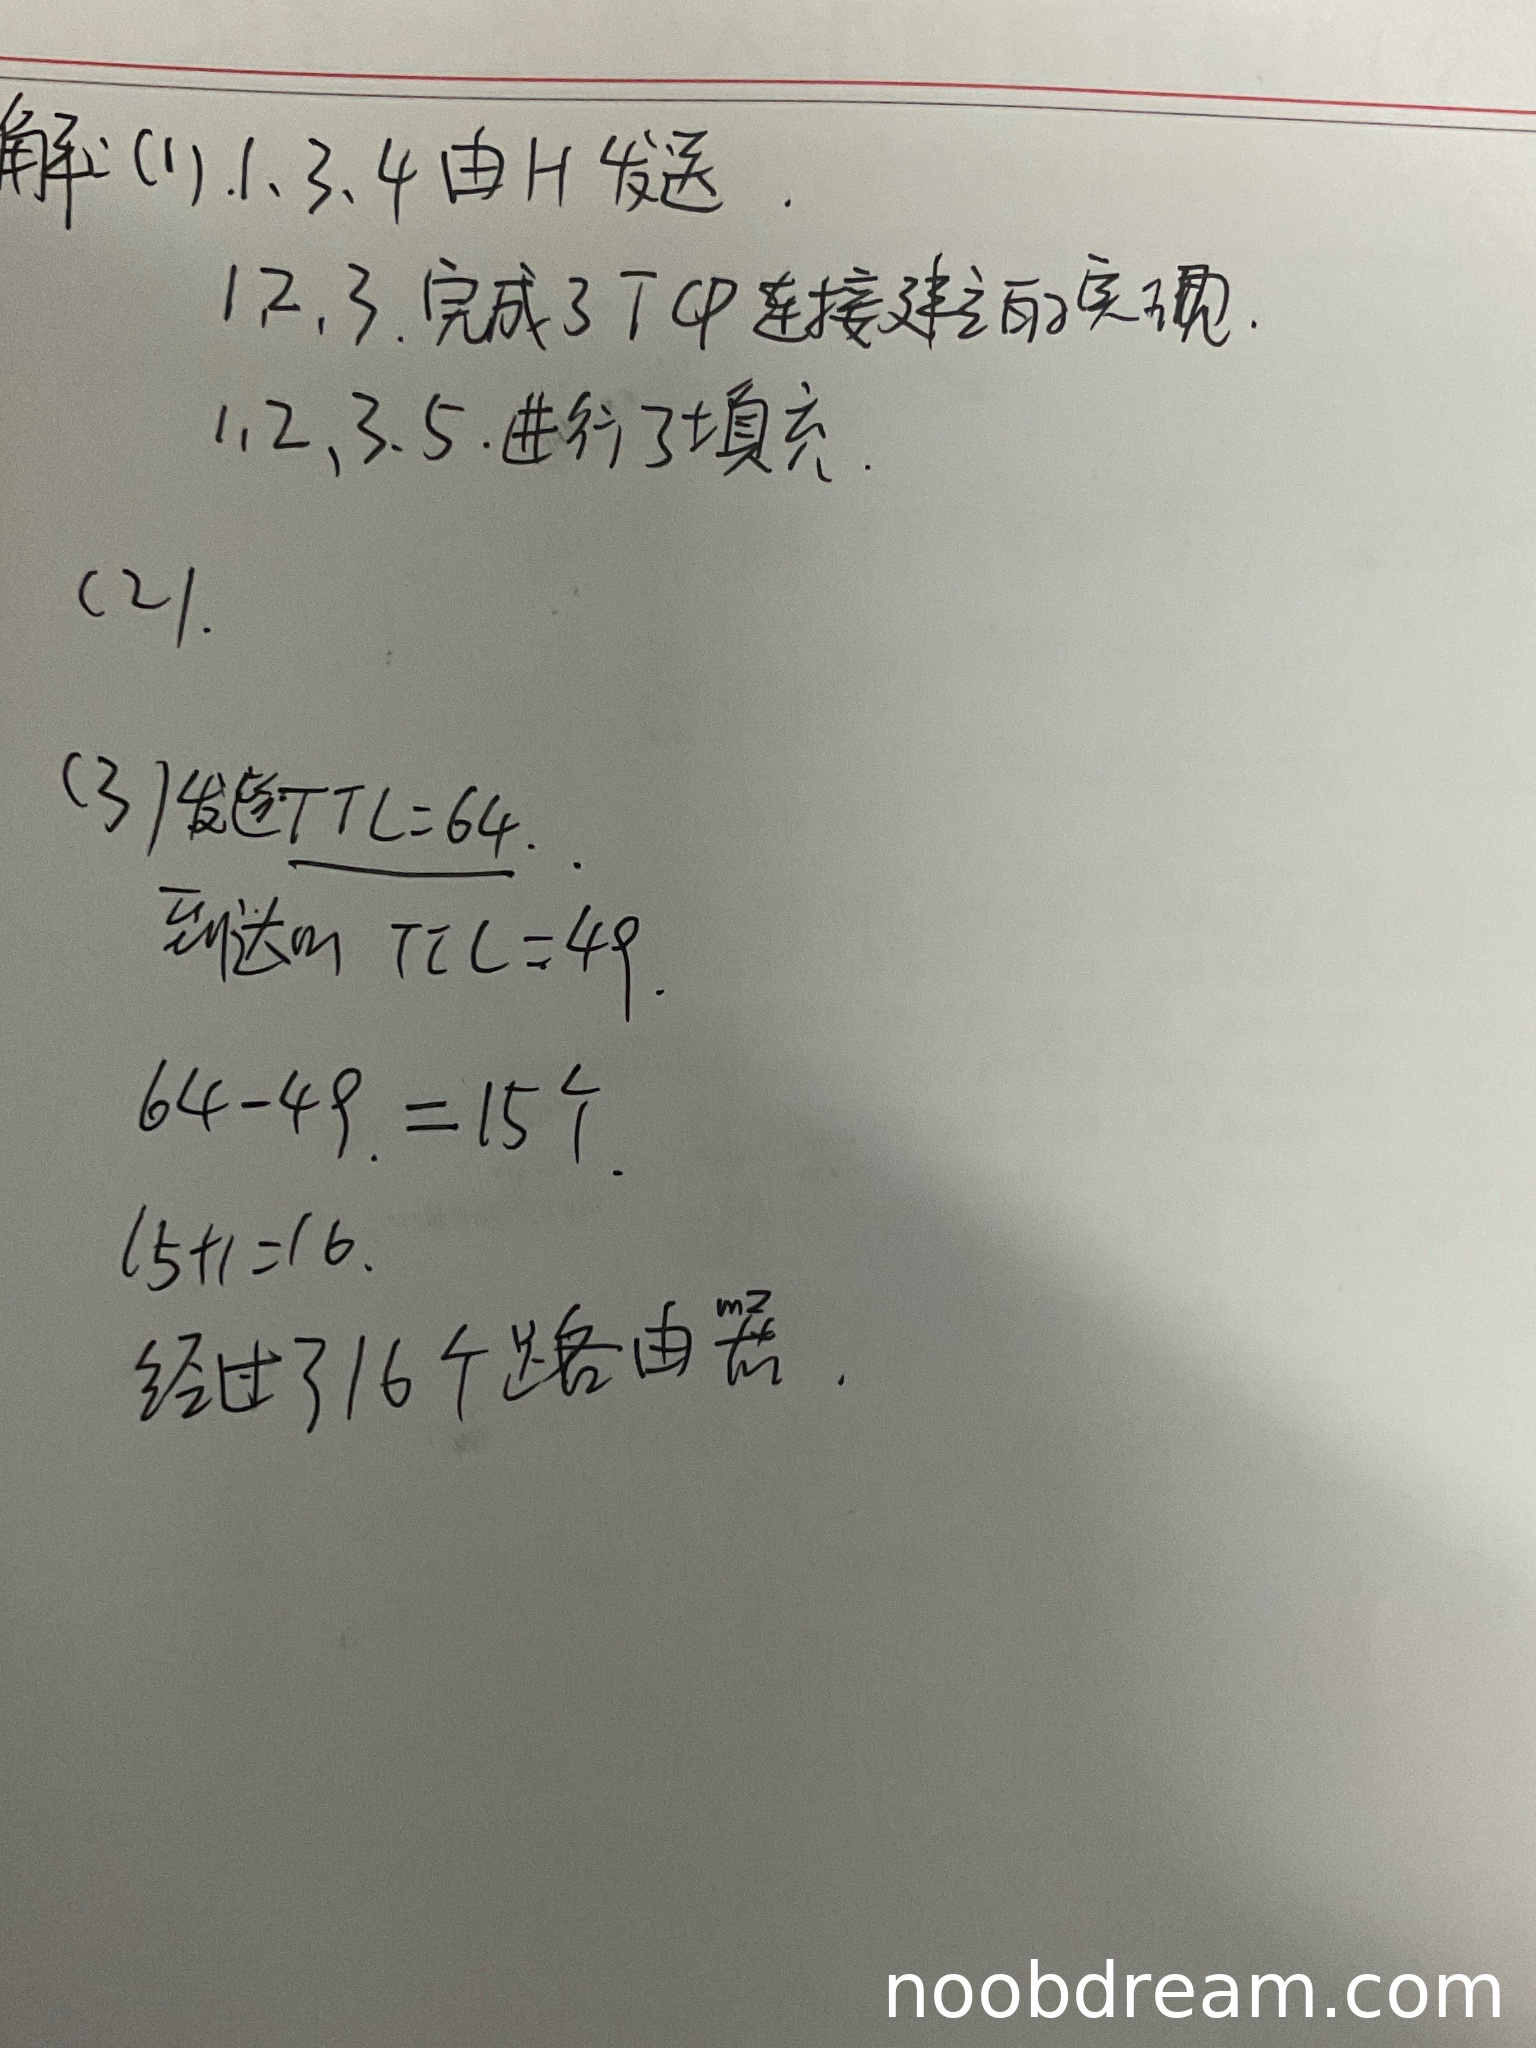 解：(1).1、3、4由H发送.
1,2,3.完成了TCP连接建立的实现.
1,2、3、5.进行了填充.
(2).
(3)发送TTL=64.
到达时 TTL=49.
64-49.=15个.
15+1=16.
经过了16个路由器.
noobdream.com